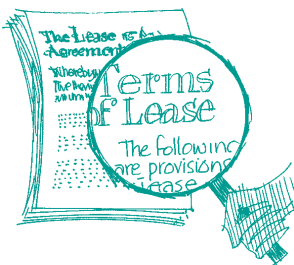 The Lease is A
Agreement
Whereby
The
Terms
of Lease
The following
are provisions
Lease